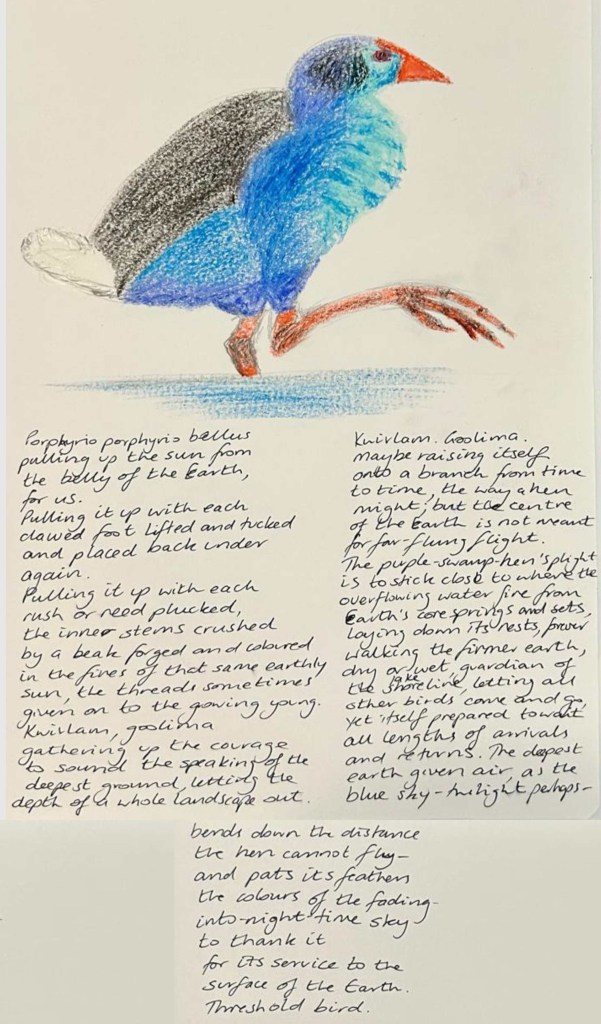 Porphyrio porphyrio bellus
pulling up the sun from
the belly of the Earth,
for us.
Pulling it up with each
clawed foot lifted and tucked
and placed back under
again.
Pulling it up with each
rush or reed plucked,
the inner stems crushed
by a beak forged and coloured
in the fires of that same earthly
sun, the threads sometimes
given on to the gowing young.
Kwirlam, goolima
gathering up the courage
to sound the speaking of the
deepest ground, letting the
depth of a whole landscape out.
Kwirlam. Goolima.
maybe raising itself
onto a branch from time
to time, the way a hen
might, but the centre
of the Earth is not meant
for far-flung flight.
The purple-swamp-hen's plight
is to stick close to where the
overflowing water fire from
Earth's core springs and sets,
laying down its nests, forever
walking the firmer earth,
dry or wet, guardian of
the lake shoreline, letting all
other birds come and go,
yet itself prepared to wait
all lengths of arrivals
and returns. The deepest
earth given air, as the
blue sky - twilight perhaps -
bends down the distance
the hen cannot fly -
and pats its feathers
the colours of the fading-
into-night-time sky
to thank it
for its service to the
surface of the Earth.
Threshold bird.